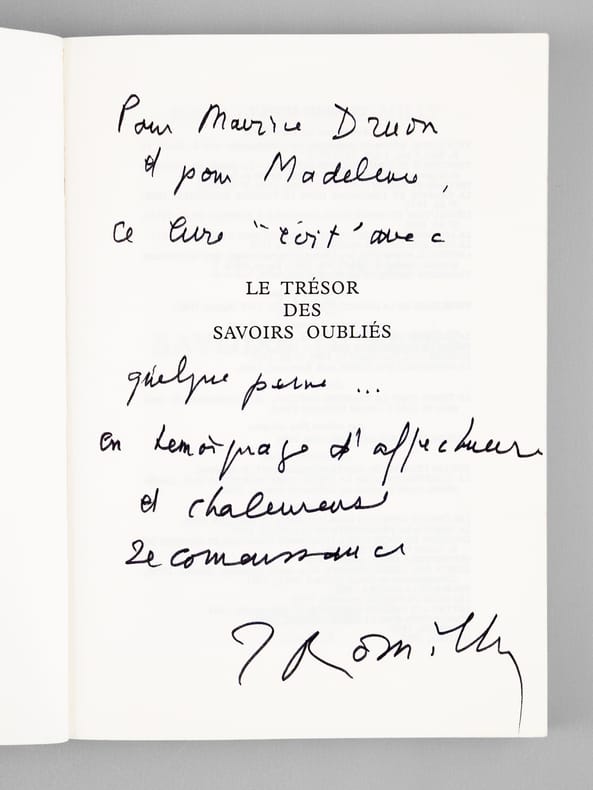 Pour Maurice Druon
et pour Madeleine,
ce livre "écrit" avec
LE TRÉSOR
DES
SAVOIRS OUBLIÉS
quelque peine ...
en témoignage d'affectueuse
et chaleureuse
reconnaissance
J Romilly